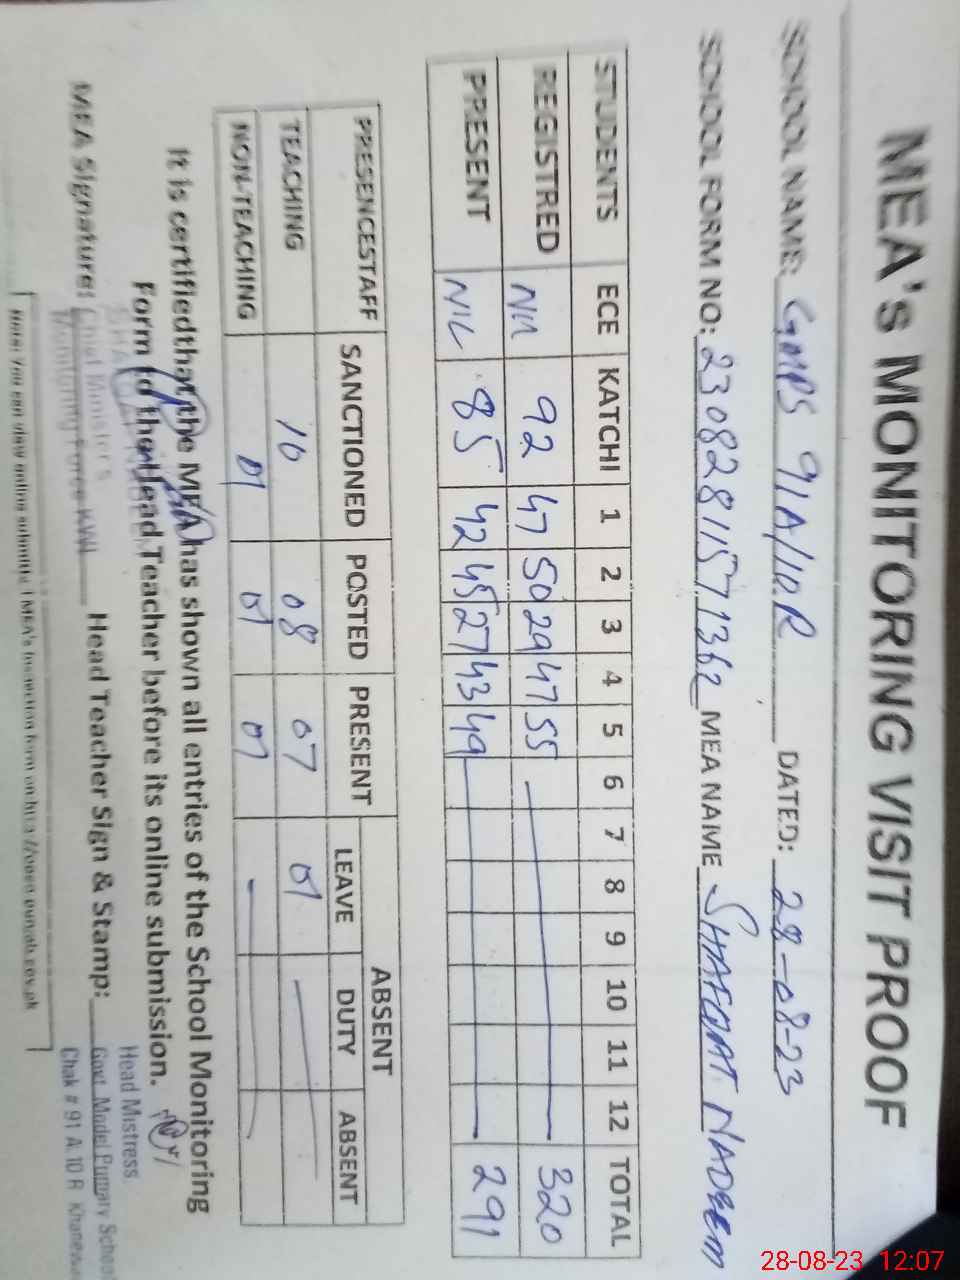 MEA's MONITORING VISIT PROOF
SCHOOL NAME: GMPS 91A/10.R DATED: 28-08-23
SCHOOL FORM NO: 23082811571362 MEA NAME SHAFQAT NADEEM
STUDENTS ECE KATCHI 1 2 3 4 5 6 7 8 9 10 11 12 TOTAL
REGISTRED Nil 92 47 50 29 47 55 320
PRESENT NIL 85 42 45 27 43 49 291
ABSENT
PRESENCESTAFF SANCTIONED POSTED PRESENT LEAVE DUTY ABSENT
TEACHING 10 08 07 01
NON-TEACHING 01 01 01
It is certifiedthat the MEA has shown all entries of the School Monitoring
Form to the Head Teacher before its online submission.
MEA Signature: Head Teacher Sign & Stamp:
Chief Minister's
Monitoring Force KWL
Head Mistress
Govt. Model Pumary School
Chak # 91 A.10 R Khanewal
Note: You can view online submitted MEA's Inspection form on
28-08-23 12:07